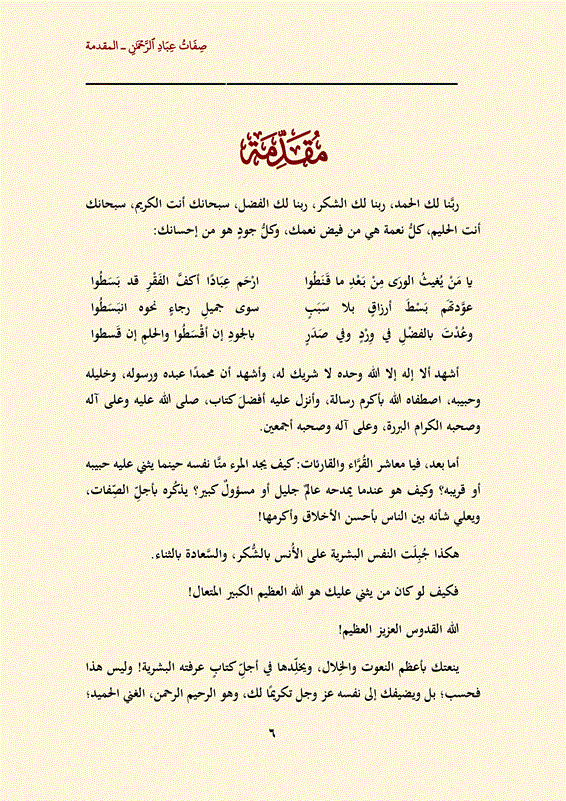 صِفَاتُ عِبَادِ ٱلرَّحْمَٰنِ ـ المقدمة
مُقَدِّمَة
ربَّنا لك الحمد، ربنا لك الشكر، ربنا لك الفضل، سبحانك أنت الكريم، سبحانك
أنت الحليم، كلُّ نعمة هي من فيض نعمك، وكلُّ جودٍ هو من إحسانك:
يا مَنْ يُغيثُ الورَى مِنْ بَعْدِ ما قَنَطُوا ارْحَم عِبَادًا أكفَّ الفَقْرِ قد بَسَطُوا
عوَّدتَهُم بَسْطَ أرزاقٍ بلا سَبَبٍ سوى جميلِ رجاءٍ نحوه انبَسَطُوا
وعُدْتَ بالفضْلِ في وِرْدٍ وفي صَدَرٍ بالجودِ إن أقْسَطُوا والحلمِ إن قَسطوا
أشهد ألا إله إلا الله وحده لا شريك له، وأشهد أن محمدًا عبده ورسوله، وخليله
وحبيبه، اصطفاه الله بأكرم رسالة، وأنزل عليه أفضلَ كتاب، صلى الله عليه وعلى آله
وصحبه الكرام البررة، وعلى آله وصحبه أجمعين.
أما بعد، فيا معاشر القُرَّاء والقارئات: كيف يجد المرء منَّا نفسه حينما يثني عليه حبيبه
أو قريبه؟ وكيف هو عندما يمدحه عالمٌ جليل أو مسؤولٌ كبير؟ يذكُره بأجلِّ الصِّفات،
ويعلي شأنه بين الناس بأحسن الأخلاق وأكرمها!
هكذا جُبِلَت النفس البشرية على الأُنس بالشُّكر، والسَّعادة بالثناء.
فكيف لو كان من يثني عليك هو الله العظيم الكبير المتعال!
الله القدوس العزيز العظيم!
ينعتك بأعظم النعوت والخِلال، ويخلِّدها في أجلِّ كتابٍ عرفته البشرية! وليس هذا
فحسب؛ بل ويضيفك إلى نفسه عز وجل تكريمًا لك، وهو الرحيم الرحمن، الغني الحميد؛
٦